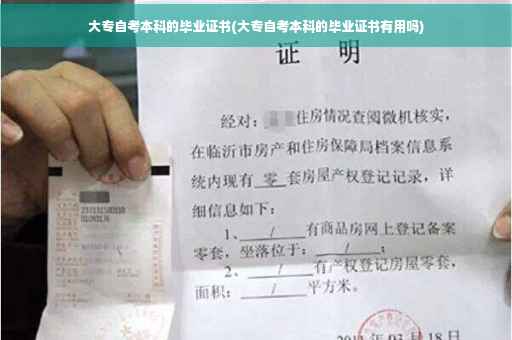 大专自考本科的毕业证书(大专自考本科的毕业证书有用吗)
证 明
经对: 住房情况查阅微机核实,
在临沂市房产和住房保障局档案信息系
统内现有 零 套房屋产权登记记录,详
细信息如下:
1、 / 有商品房网上登记备案
零套,坐落位于: / ;
2、 / 有产权登记房屋零套,
面积: / 平方米。
03月18日